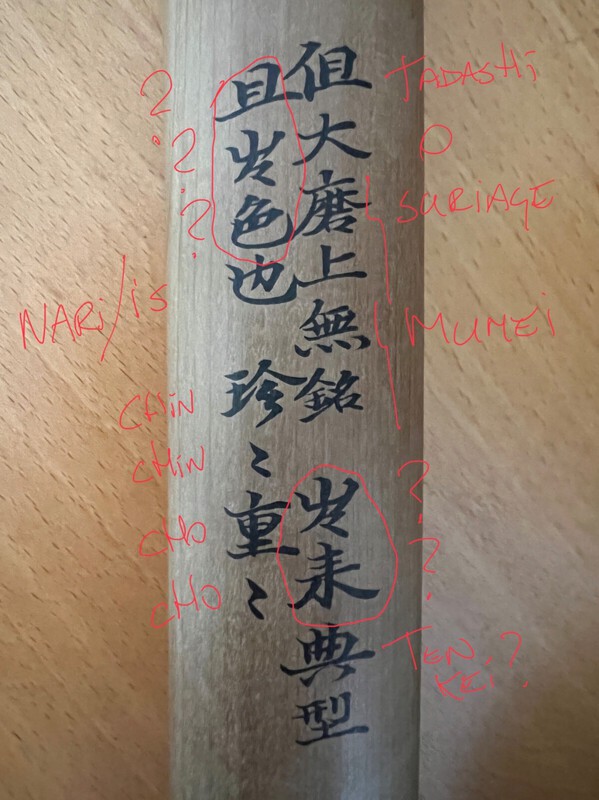 但大磨上無銘 出来典型
且出色也 珍〻重〻
TADASHi
O
SURiAGE
MUMEi
?
?
TEN
KEi?
?
?
?
NARi/iS
CHiN
CHiN
CHO
CHO